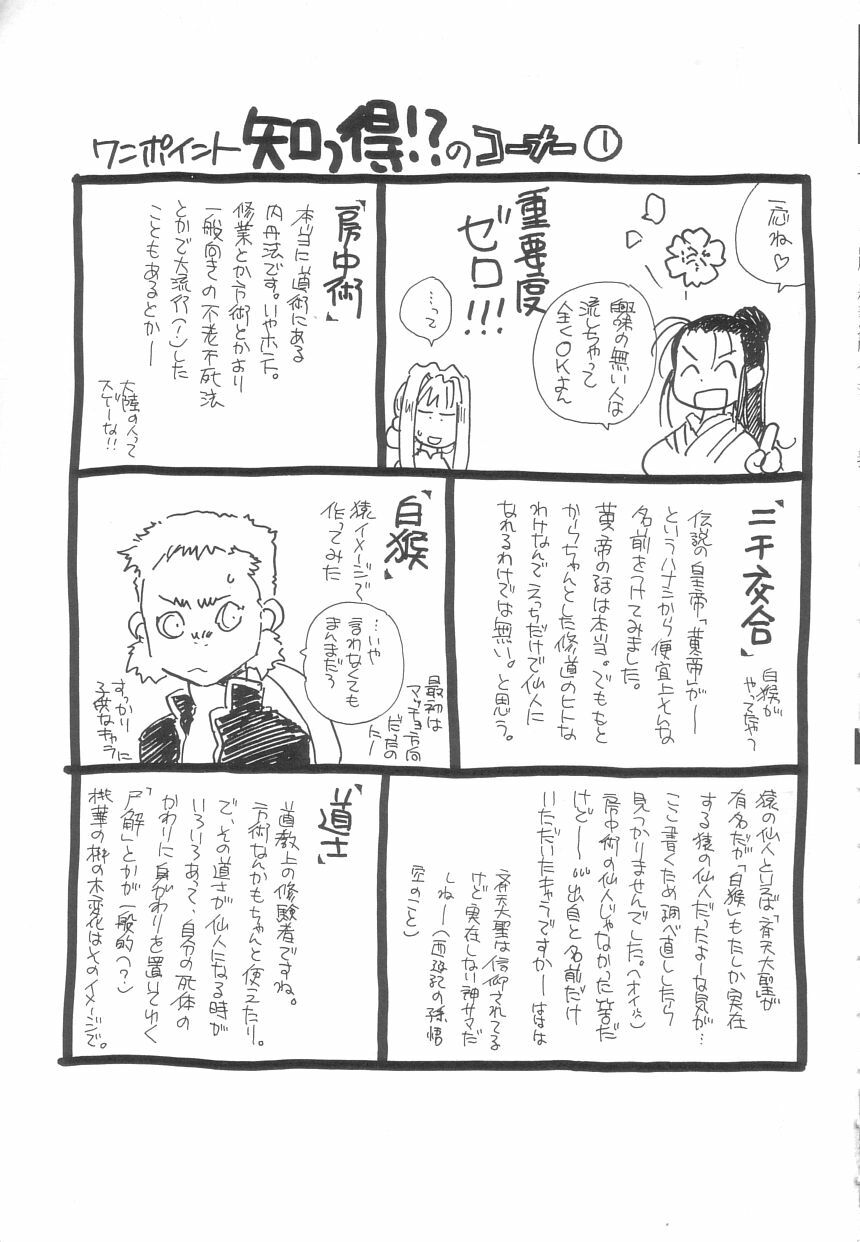 ワンポイント知っ得!?のコーナー①
一応ね♡
重要度
ゼロ!!!
興味の無い人は
流しちゃって
全くOKよん
…って
「房中術」
本当に道術にある
内丹法です。いやホント。
修業とか方術とかより
一般向きの不老不死法
とかで大流行(?)した
こともあるとかー
大陸の人って
スゲーな!!
「二千交合」
白猴が
やってたやつ
伝説の皇帝「黄帝」がー
というハナシから便宜上そんな
名前をつけてみました。
黄帝の話は本当。でももと
からちゃんとした修道のヒトな
わけなんでえっちだけで仙人に
なれるわけでは無い。と思う。
「白猴」
猿イメージで
作ってみた
…いや
言わなくても
まんまだろ
最初は
マッチョ方向
だったの
にー
すっかり
子供なキャラに
猿の仙人といえば「斉天大聖」が
有名だが「白猴」もたしか実在
する猿の仙人だったよーな気が…
ここ書くため調べ直ししたら
見つかりませんでした。(オイ)
房中術の仙人じゃなかった筈だ
けどー…出自と名前だけ
いただいたキャラですかーははは
斉天大聖は信仰されてる
けど実在しない神サマだ
しねー(西遊記の孫悟
空のこと)
「道士」
道教上の修験者ですね。
方術なんかもちゃんと使えたり。
で、その道さが仙人になる時が
いろいろあって、自分の死体の
かわりに身がわりを置いてゆく
「尸解」とかが一般的(?)
桃華の桃の木変化はそのイメージで。